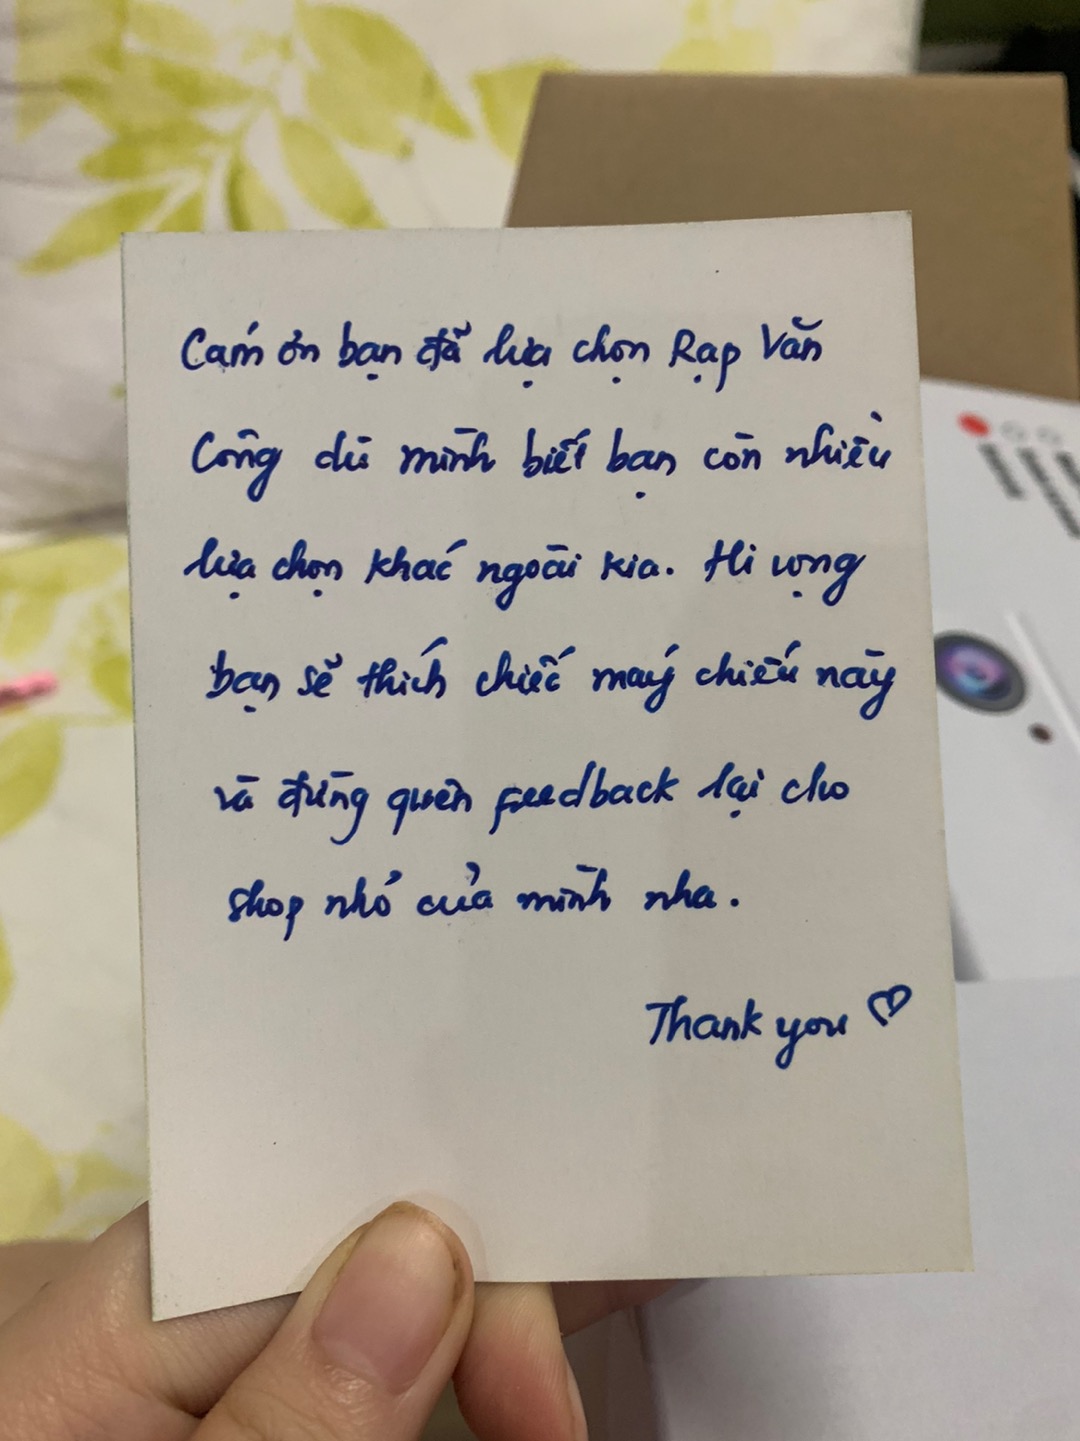 Cám ơn bạn đã lựa chọn Rạp Văn
Công dù mình biết bạn còn nhiều
lựa chọn khác ngoài kia. Hi vọng
bạn sẽ thích chiếc máy chiếu này
và đừng quên feedback lại cho
shop nhỏ của mình nha.
Thank you ♡